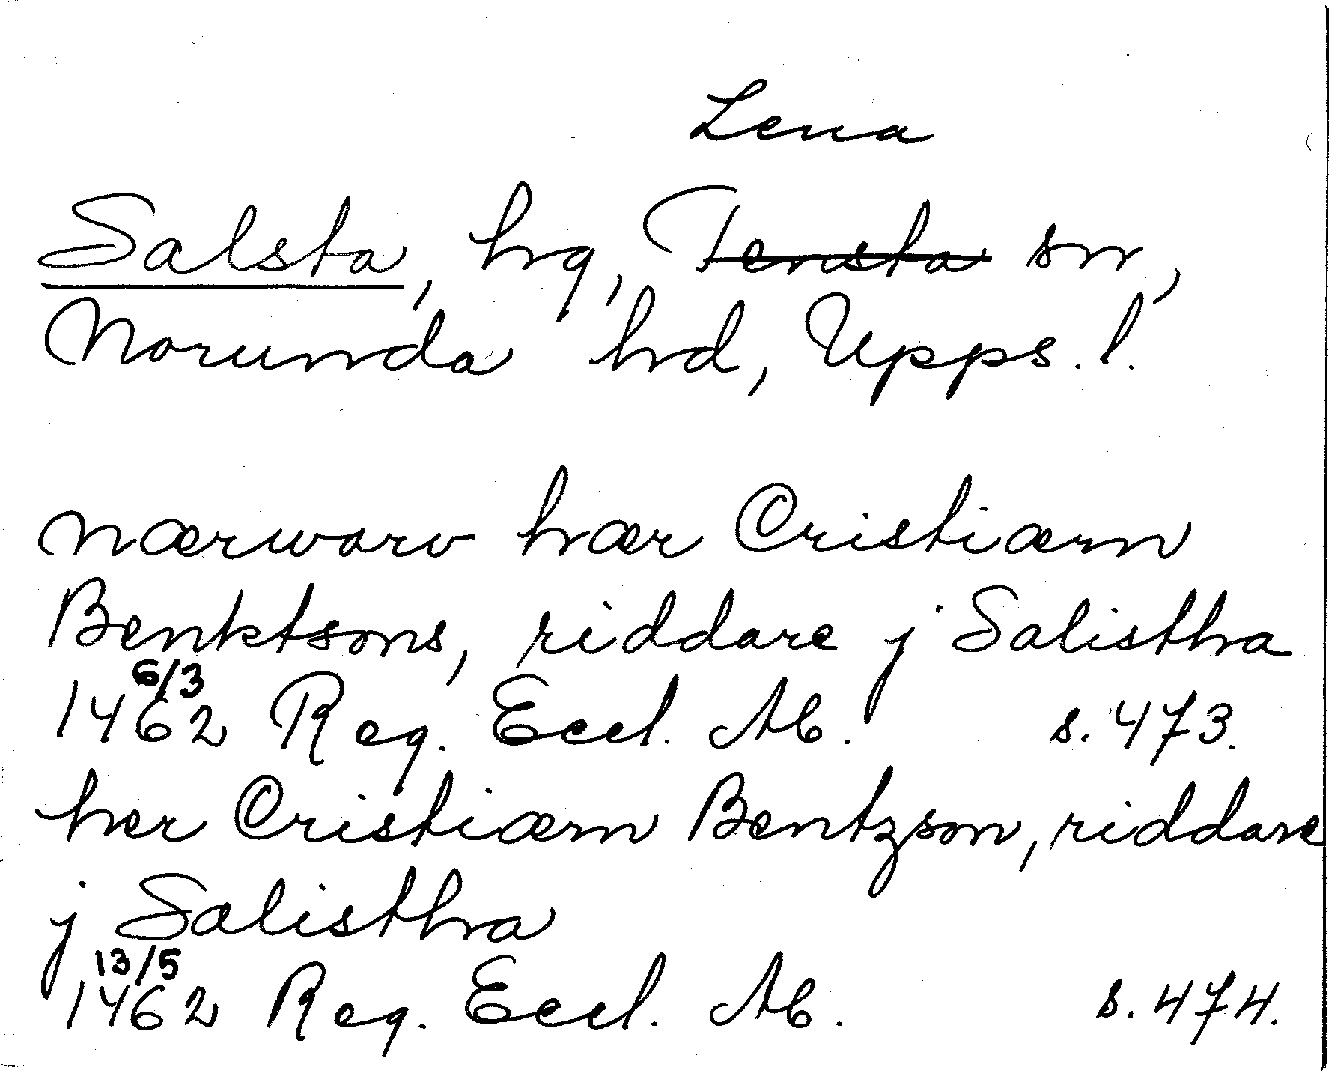 Lena
Salsta, hg, Tensta sn,
Norunda hd, Upps. l.
nærwaro hær Cristiærn
Benktsons, riddare j Salistha
6/3
1462 Reg. Eccl. M. s. 473.
her Cristiærn Bentzson, riddare
j Salistha
13/5
1462 Reg. Eccl. M. s. 474.